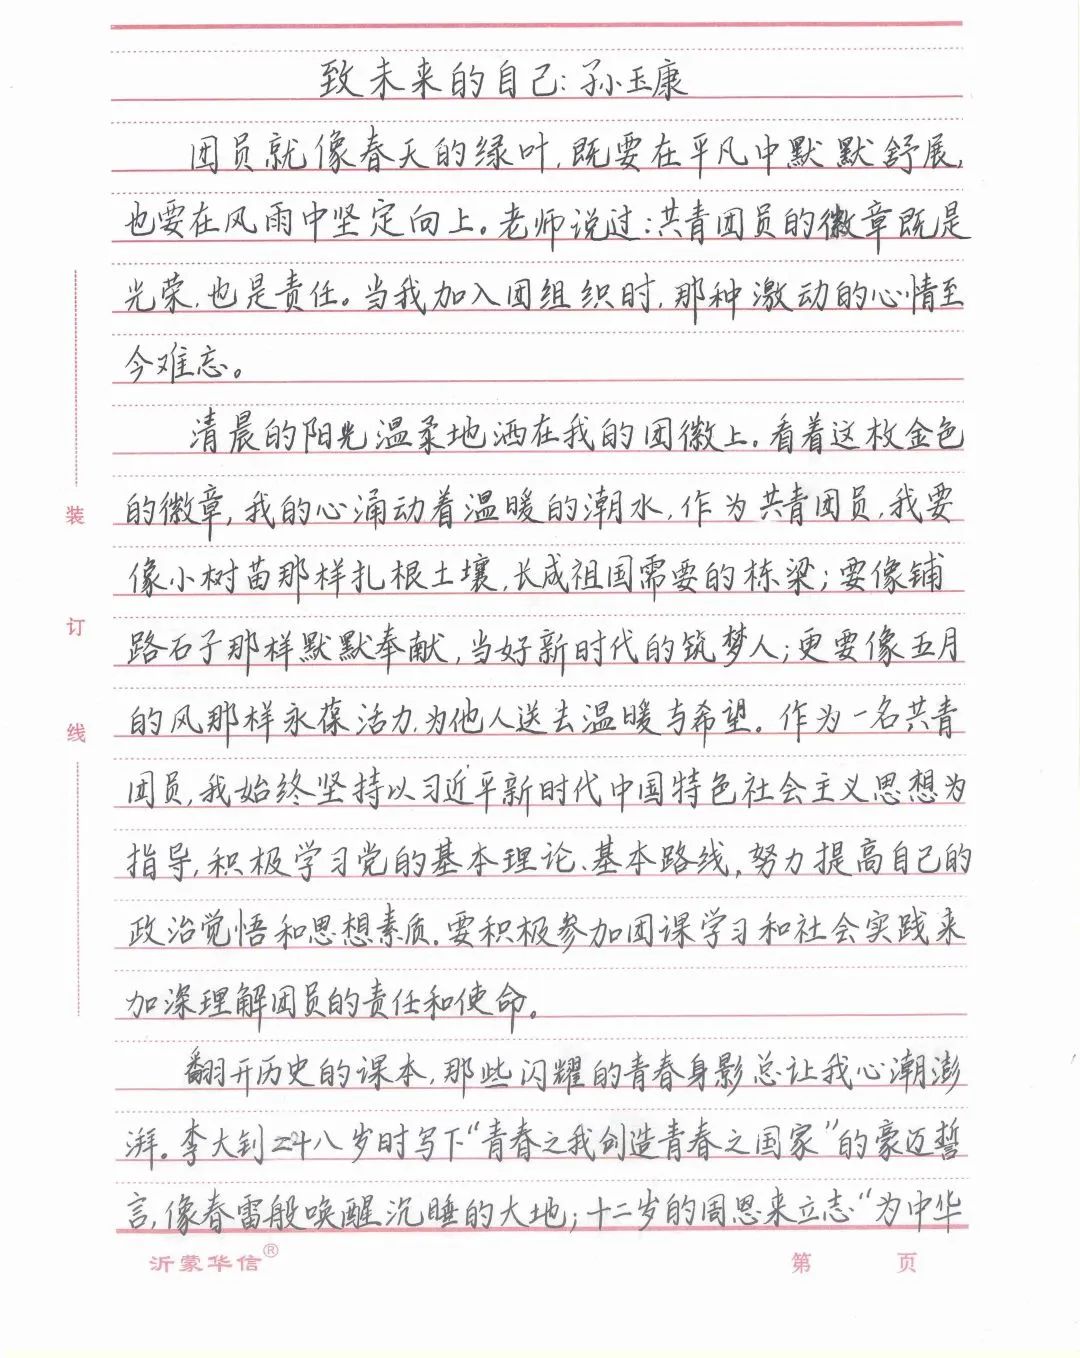 致未来的自己:孙玉康
团员就像春天的绿叶,既要在平凡中默默舒展,
也要在风雨中坚定向上。老师说过:共青团员的徽章既是
光荣,也是责任。当我加入团组织时,那种激动的心情至
今难忘。
清晨的阳光温柔地洒在我的团徽上。看着这枚金色
的徽章,我的心涌动着温暖的潮水,作为共青团员,我要
像小树苗那样扎根土壤,长成祖国需要的栋梁;要像铺
路石子那样默默奉献,当好新时代的筑梦人;更要像五月
的风那样永葆活力,为他人送去温暖与希望。作为一名共青
团员,我始终坚持以习近平新时代中国特色社会主义思想为
指导,积极学习党的基本理论、基本路线,努力提高自己的
政治觉悟和思想素质。要积极参加团课学习和社会实践来
加深理解团员的责任和使命。
翻开历史的课本,那些闪耀的青春身影总让我心潮澎
湃。李大钊二十八岁时写下“青春之我创造青春之国家”的豪迈誓
言,像春雷般唤醒沉睡的大地;十二岁的周恩来立志“为中华
装
订
线
沂蒙华信®
第 页